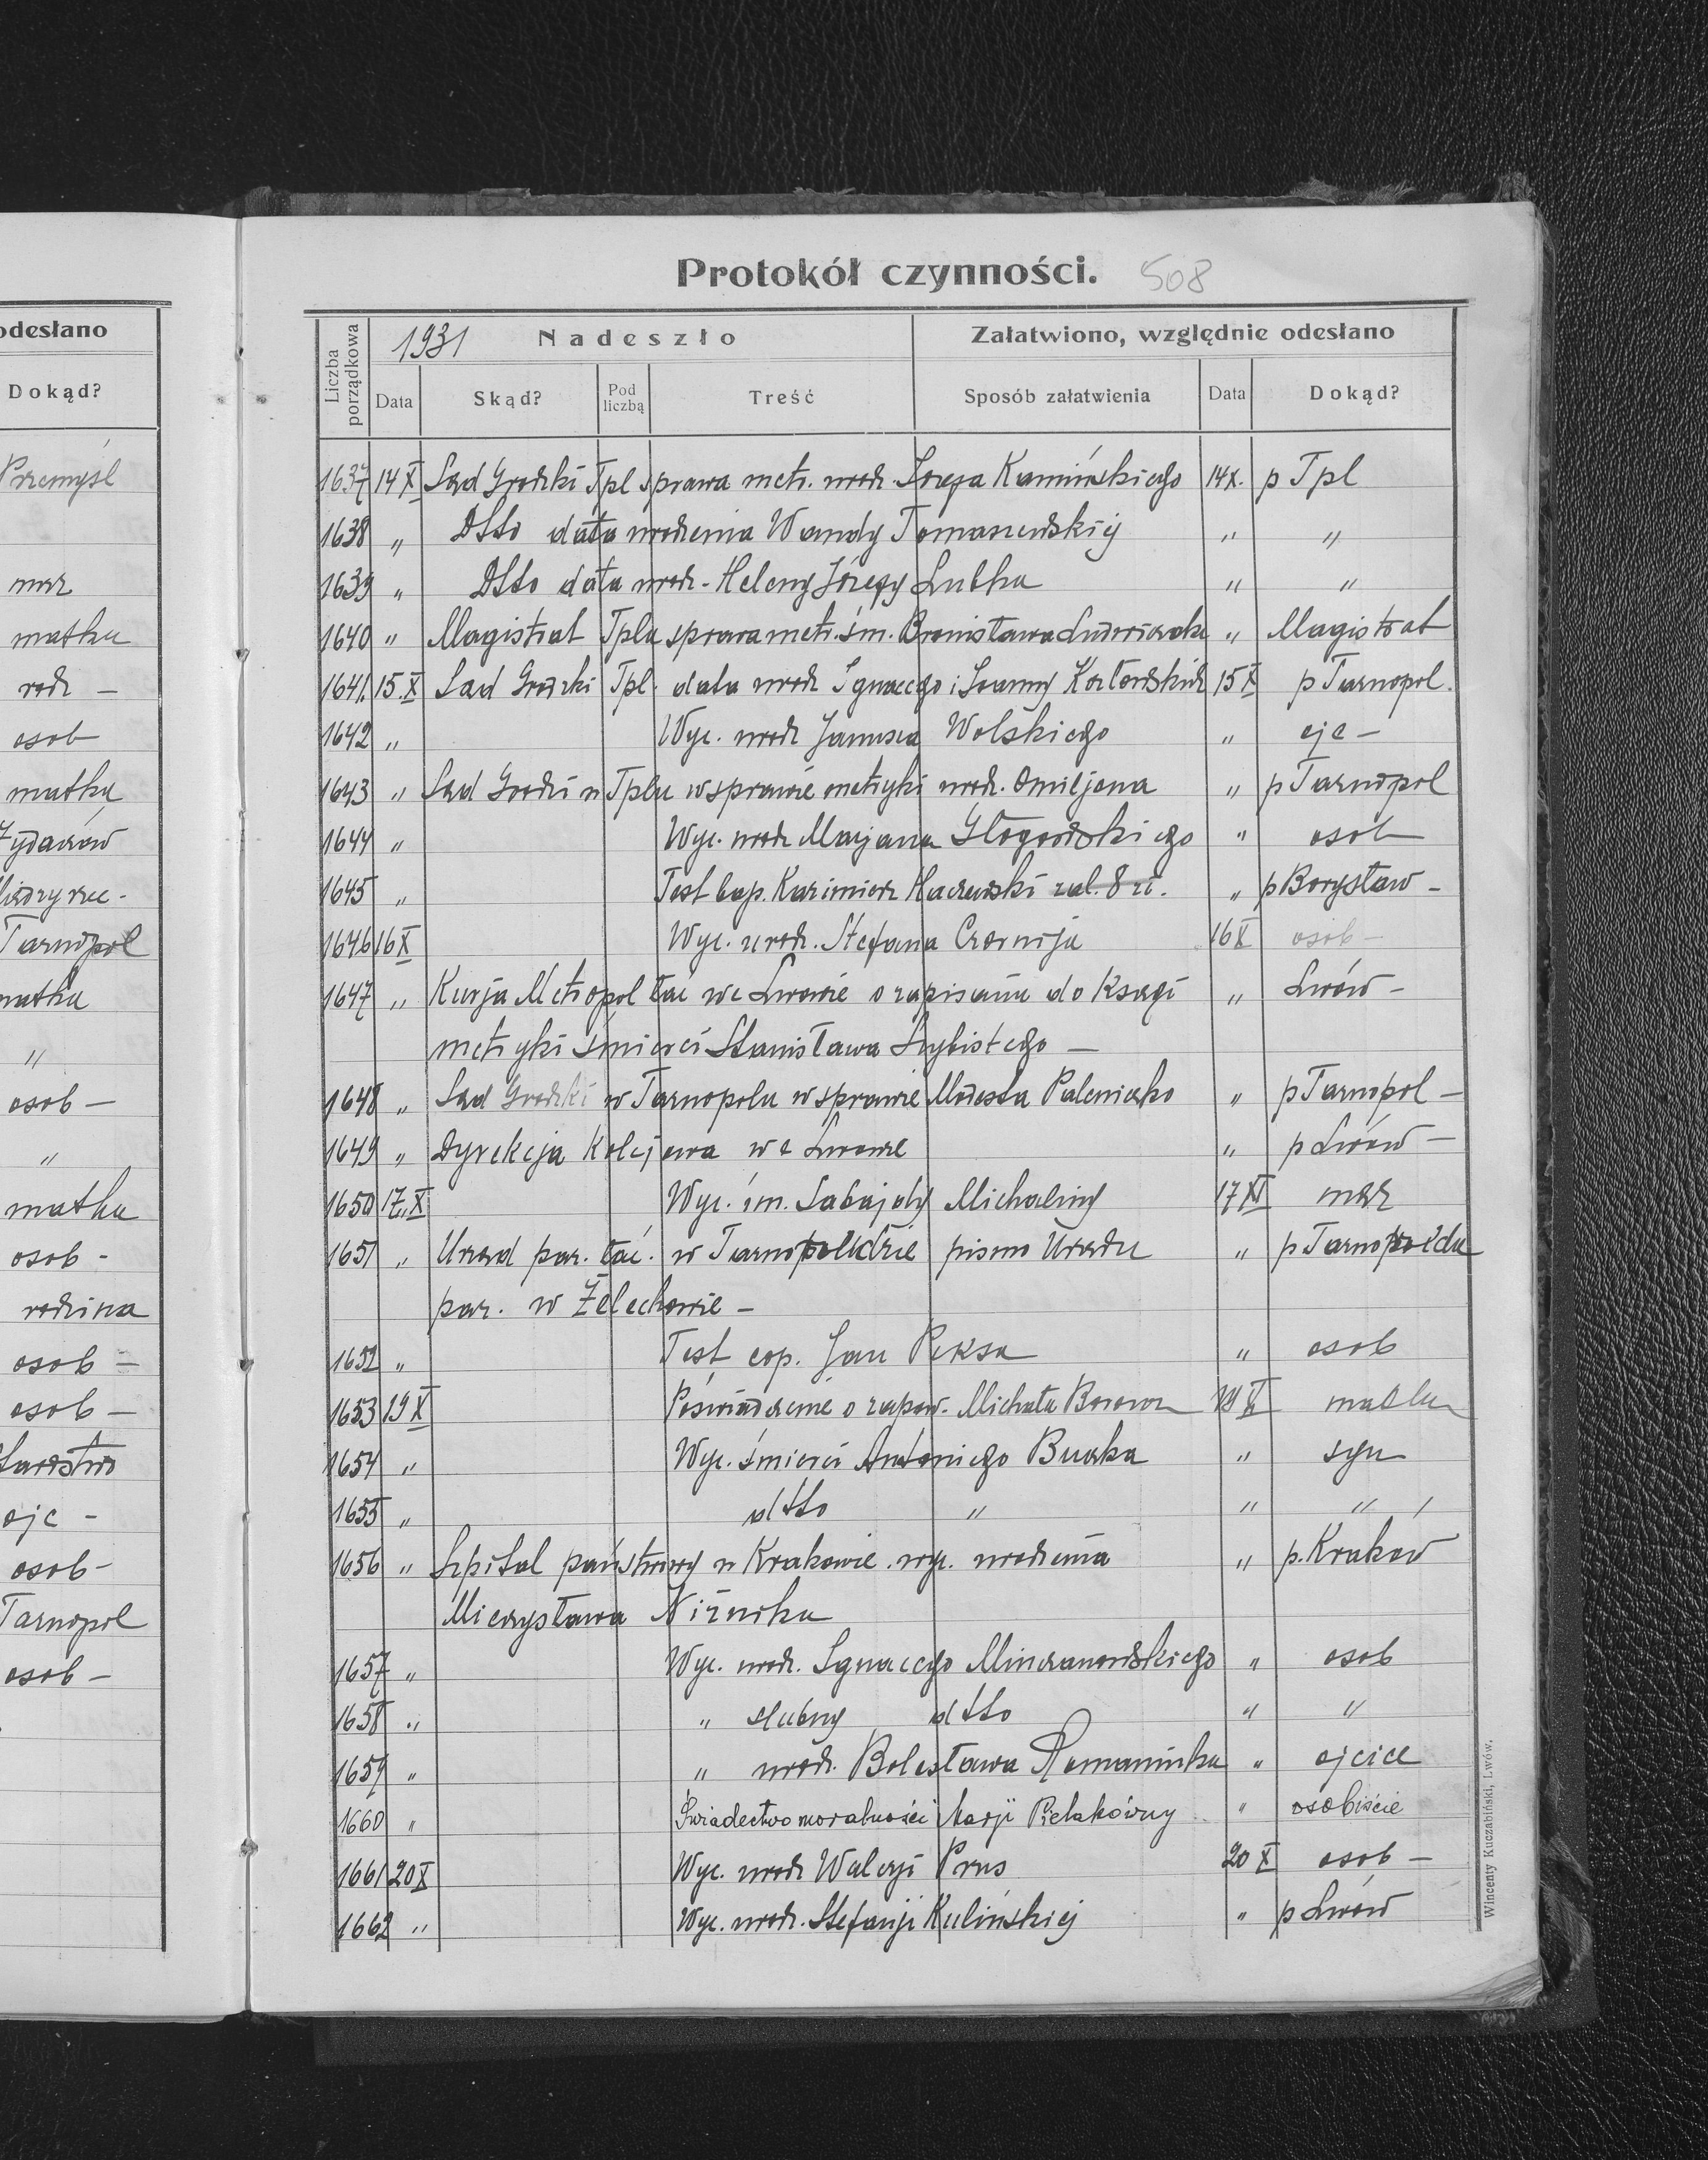 odesłano
Dokąd?
Przemyśl
mąż
matka
rodz –
osob
matka
Żydaczów
Tarnopol
matka
"
osob –
"
matka
osob -
rodzina
osob –
osob –
Starostwo
ojc -
osob -
Tarnopol
osob –
Protokół czynności. 508
Liczba porządkowa
1931 Nadeszło
Załatwiono, względnie odesłano
Data Skąd? Pod liczbą Treść Sposób załatwienia Data Dokąd?
1637 14 X Sąd Grodzki Tpl sprawa metr. urodz. Józefa Kamińskiego 14 X. p Tpl
1638 " Dtto data urodzenia Wandy Tomaszewskiej " "
1639 " Dtto data urodz. Heleny Józefy Lubka " "
1640 " Magistrat Tplu sprawa metr. śm. Bronisława " Magistrat
1641. 15.X Sąd Grodzki Tpl. data urodz Ignacego i Joanny Kozłowskich 15 X p Tarnopol.
1642 " Wyc. urodz Janusza Wolskiego " ojc –
1643 " Sąd Grodzki w Tplu w sprawie metryki urodz. Omiljana " p Tarnopol
1644 " Wyc. urodz Marjana Głogowskiego " osob
1645 " Test bap. Kazimierz Haczewski zal. 8 zł. " p Borysław –
1646 16 X Wyc. urodz. Stefana Czernija 16 X osob –
1647 " Kurja Metropol łać we Lwowie o zapisaniu do Ksągi " Lwów –
metryki śmierci Stanisława Szybistego –
1648 " Sąd Grodzki w Tarnopolu w sprawie Modesta Paleniczko " p Tarnopol –
1649 " Dyrekcja Kolejowa we Lwowie " p Lwów –
1650 17.X Wyc. śm. Sabajdy Michaliny 17 XI mąż
1651 " Urząd par. łać. w Tarnopolu pismo Urzędu " p Tarnopol
par. w Żelechowie –
1652 " Test cop. Jan Reksa " osob
1653 19 X Poświadczenie o zapow. Michała 19 X matka
1654 " Wyc. śmierci Antoniego Buczka " syn
1655 " dtto " " "
1656 " Szpital państwowy w Krakowie wyc. urodzenia " p. Kraków
Mieczysława Niżnika
1657 " Wyc. urodz. Ignacego Minczanowskiego " osob
1658 " " ślubny dtto " "
1659 " " urodz. Bolesława Romaniuka " ojciec
1660 " Świadectwo moralności Marji Pielakówny " osobiście
1661 20 X Wyc. urodz Walerji Prus 20 X osob –
1662 " Wyc. urodz. Stefanji Kulińskiej " p Lwów
Wincenty Kuczabiński, Lwów.